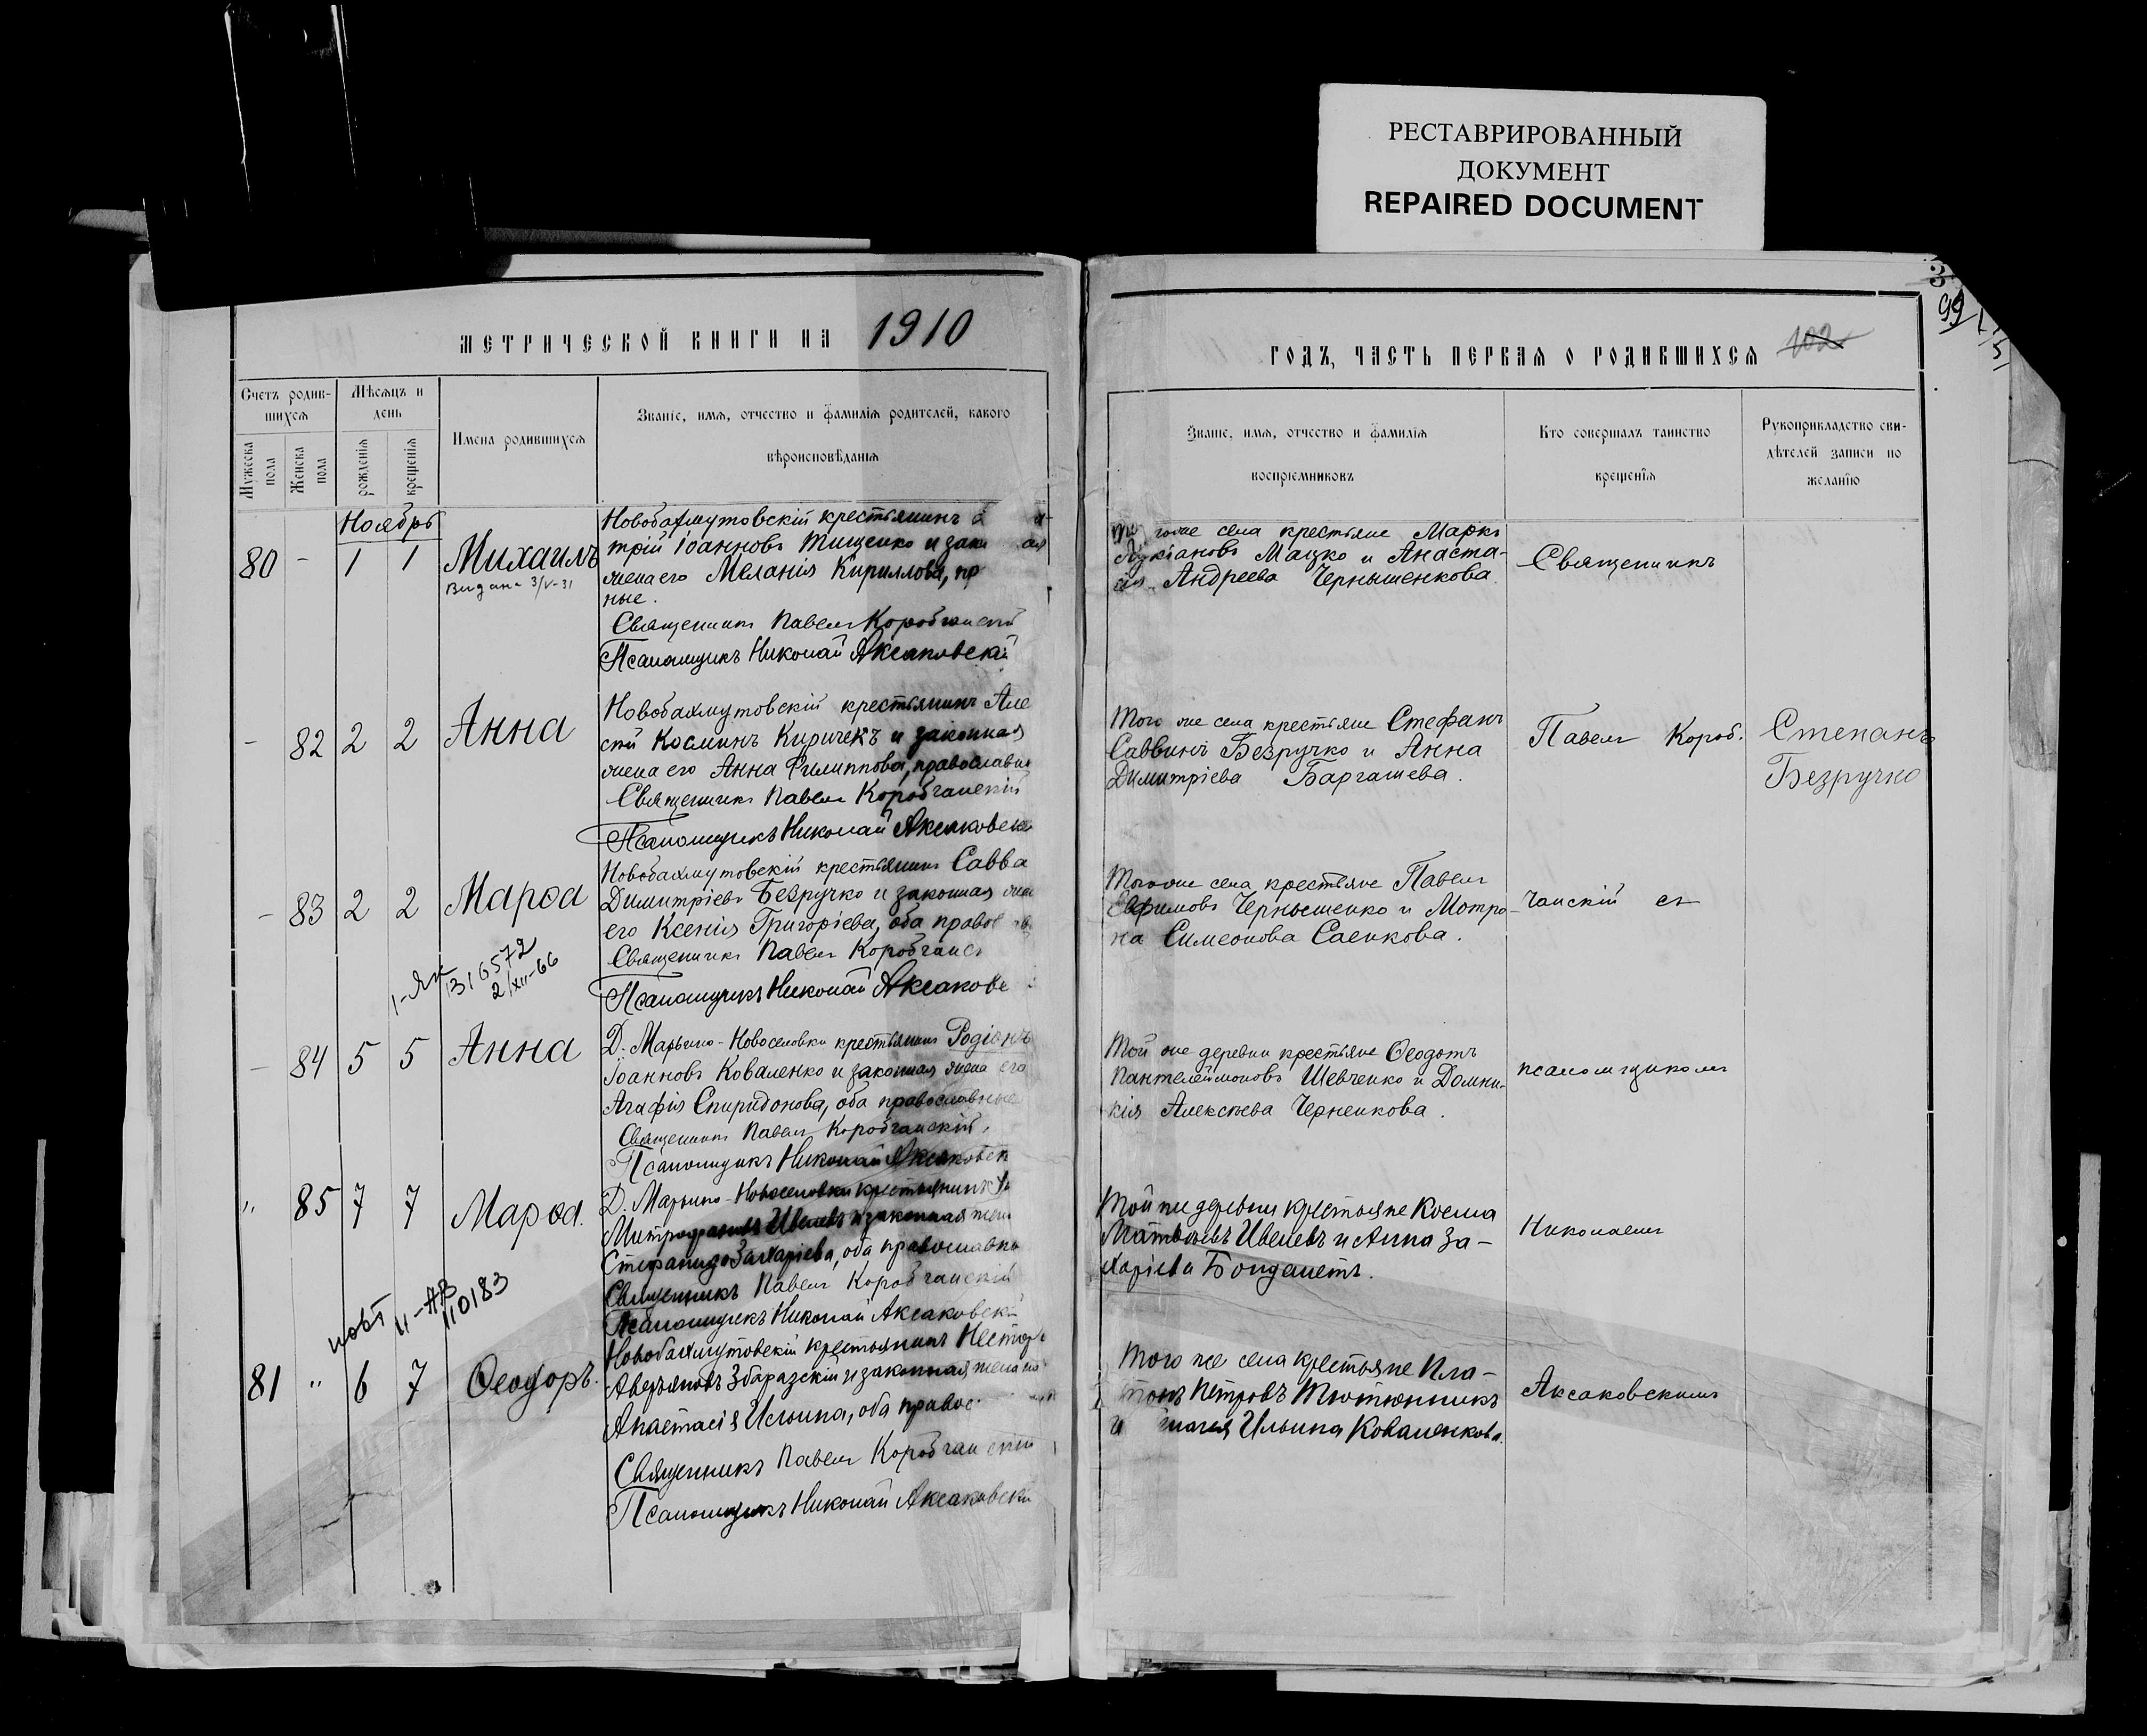 РЕСТАВРИРОВАННЫЙ
ДОКУМЕНТ
REPAIRED DOCUMENT
МЕТРИЧЕСКОЙ КНИГИ НА 1910
Счетъ родив-
шихся
Мѣсяцъ и
день
Мужеска
пола
Женска
пола
рожденія
крещенія
Имена родившихся
Званіе, имя, отчество и фамилія родителей, какого
вѣроисповѣданія
Ноябрь
80 - 1 1 Михаилъ
Видана 3/V-31
Новобахмутовскій крестьянинъ
трій Іоанновъ Тищенко и зак
жена его Меланія Кириллова, пр
ные.
Священникъ Павелъ Коробчанскій
Псаломщикъ Николай Аксаковскій
- 82 2 2 Анна
Новобахмутовскій крестьянинъ Але
сѣй Косминъ Киричекъ и законная
жена его Анна Филиппова, православн
Священникъ Павелъ Коробчанскій
Псаломщикъ Николай Аксаковск
- 83 2 2 Марѳа
Новобахмутовскій крестьянинъ Савва
Димитріевъ Безручко и законная жен
его Ксенія Григоріева, оба правос
Священникъ Павелъ Коробчанс
Псаломщикъ Николай Аксаков
1-ЯК
316572
2/XII-66
- 84 5 5 Анна
Д. Марьино-Новоселовки крестьянинъ Родіонъ
Іоанновъ Коваленко и законная жена его
Агафія Спиридонова, оба православные
Священникъ Павелъ Коробчанскій
Псаломщикъ Николай Аксаковск
" 85 7 7 Марѳа.
Д. Марьино-Новоселовки крестьянинъ
Митрофановъ Ивелевъ и законная жен
Стефанида Захаріева, оба православн
Священникъ Павелъ Коробчанскій
Псаломщикъ Николай Аксаковскій
повт II-АВ
110183
81 " 6 7 Ѳеодоръ.
Новобахмутовскій крестьянинъ Несторъ
Аверьяновъ Збаразскій и законная жена
Анастасія Ильина, оба правос
Священникъ Павелъ Коробчанскій
Псаломщикъ Николай Аксаковскій
ГОДЪ, ЧАСТЬ ПЕРВАЯ О РОДИВШИХСЯ
102
99
Званіе, имя, отчество и фамилія
воспріемниковъ
Кто совершалъ таинство
крещенія
Рукоприкладство сви-
дѣтелей записи по
желанію
того же села крестьяне Маркъ
Лукіановъ Мацко и Анаста-
сія Андреева Чернышенкова.
Священникъ
Того же села крестьяне Стефанъ
Саввинъ Безручко и Анна
Димитріева Баргашева.
Павелъ Короб.
Степанъ
Безручко
Того же села крестьяне Павелъ
Ефимовъ Чернышенко и Мотро-
на Симеонова Саенкова.
чанскій съ
Той же деревни крестьяне Ѳеодотъ
Пантелеймоновъ Шевченко и Домни-
кія Алексѣева Черненкова.
псаломщикомъ
Той же деревни крестьяне Косма
Матвѣевъ Ивелевъ и Анна За-
харіева Бондаметъ.
Николаемъ
Того же села крестьяне Пла-
тонъ Петровъ Тютюнникъ
и Ильина Коваленкова.
Аксаковскимъ